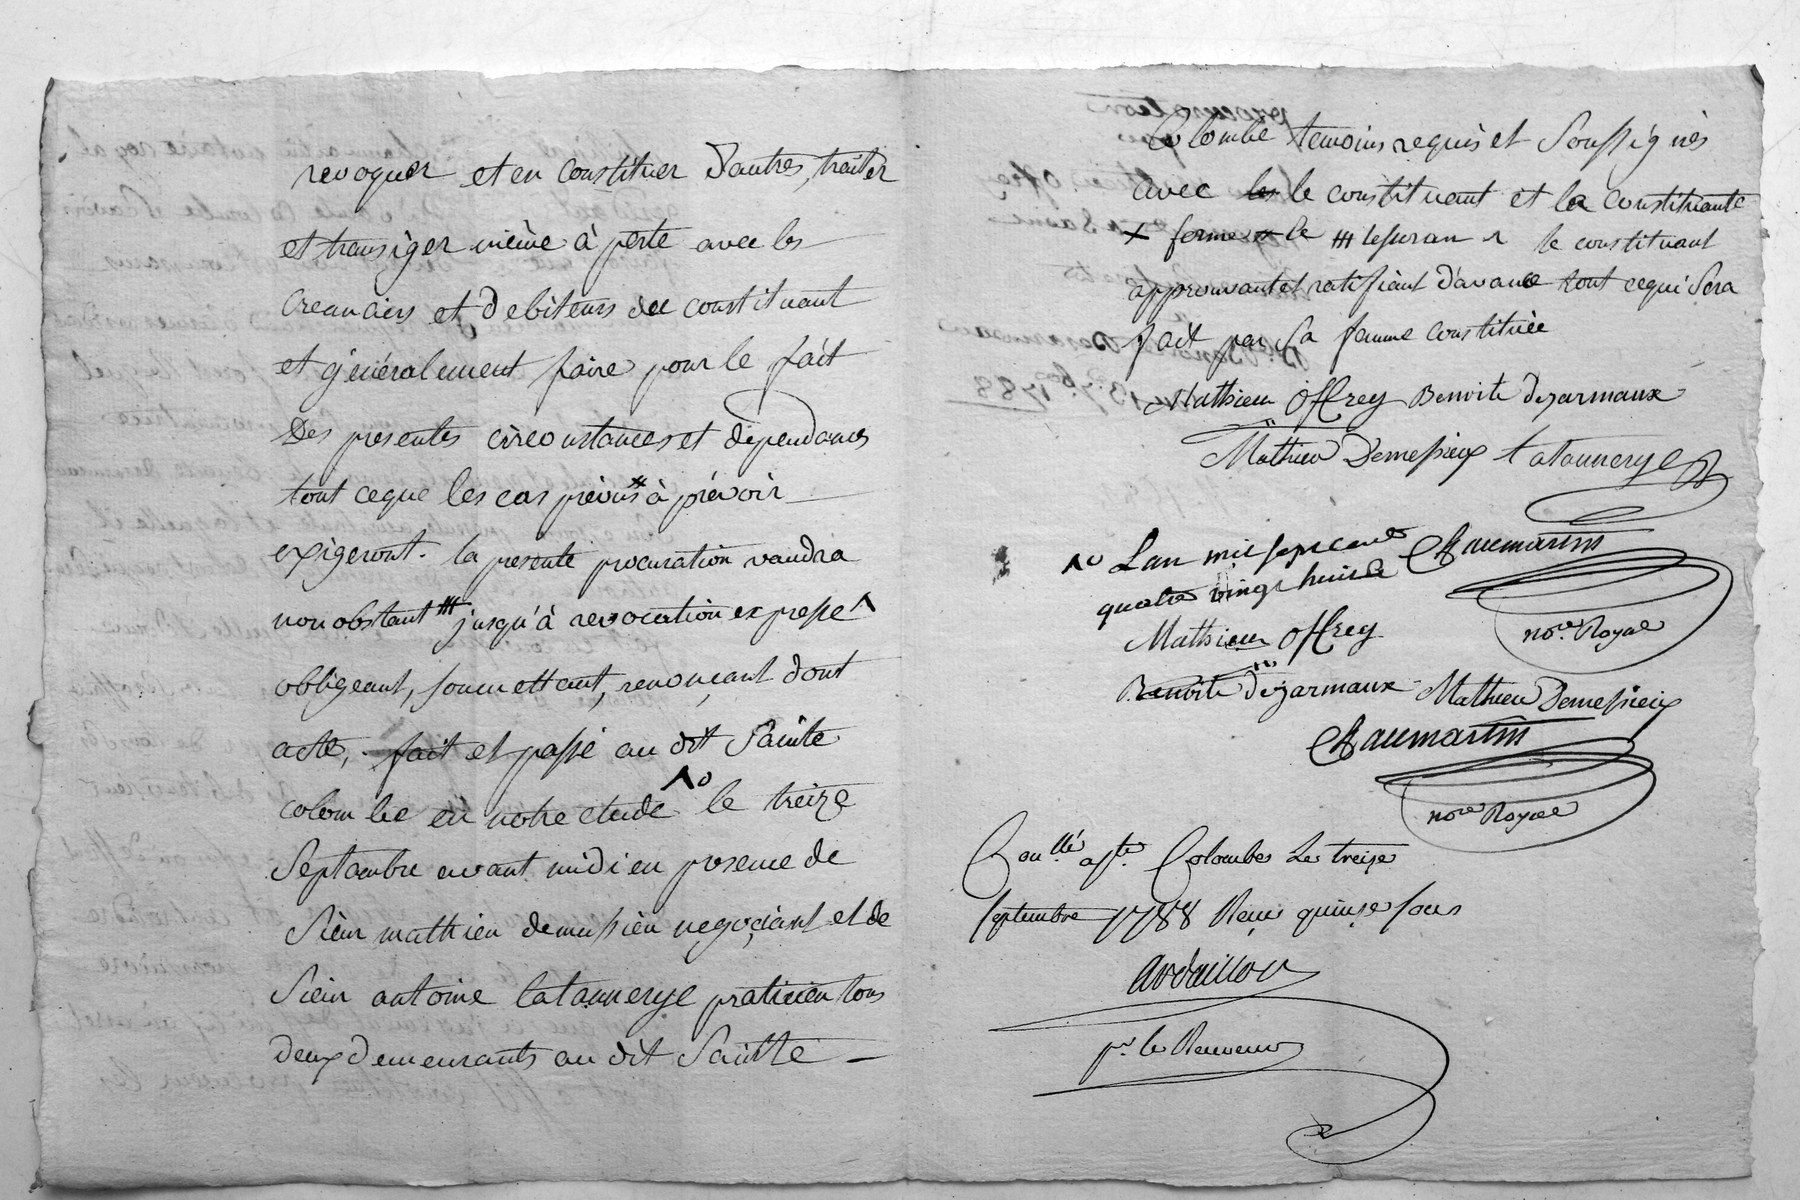 revoquer et en constituer d'autres, traiter
et transiger même à perte avec les
creanciers et debiteurs du constituant
et généralement faire pour le fait
des presentes circonstances et dépendances
tout ceque les cas prévus # à prévoir
exigeront. la presente procuration vaudra
nonobstant ### jusqu'à revocation expresse ^
obligeant, soumettant, renonçant dont
acte, fait et passé au dit Sainte
colombe en notre etude ^o le treize
Septembre avant midi en presence de
Sieur mathieu demessieu negociant et de
Sieur antoine latannerye praticien tous
deux demeurants au dit Sainte
Colombe temoins requis et Soussignés
avec les le constituant et la constituante
x forme # le ### 1 le constituant
approuvant et ratifiant d'avance tout cequi Sera
fait par Sa femme constituée
Mathieu Offrey Benoite dejarmaux
Mathieu Demessieux Latannerye
^o Lan mil sept cent
quatre vingt huit
Chaumartin
Mathieu Offrey
nore. Royal
Benoite dejarmaux Mathieu Demessieux
Chaumartin
nore Royal
Conllé a Ste. Colombes Le treize
septembre 1788 Reçu quinze sous
Ardaillon
pr. le Receveur